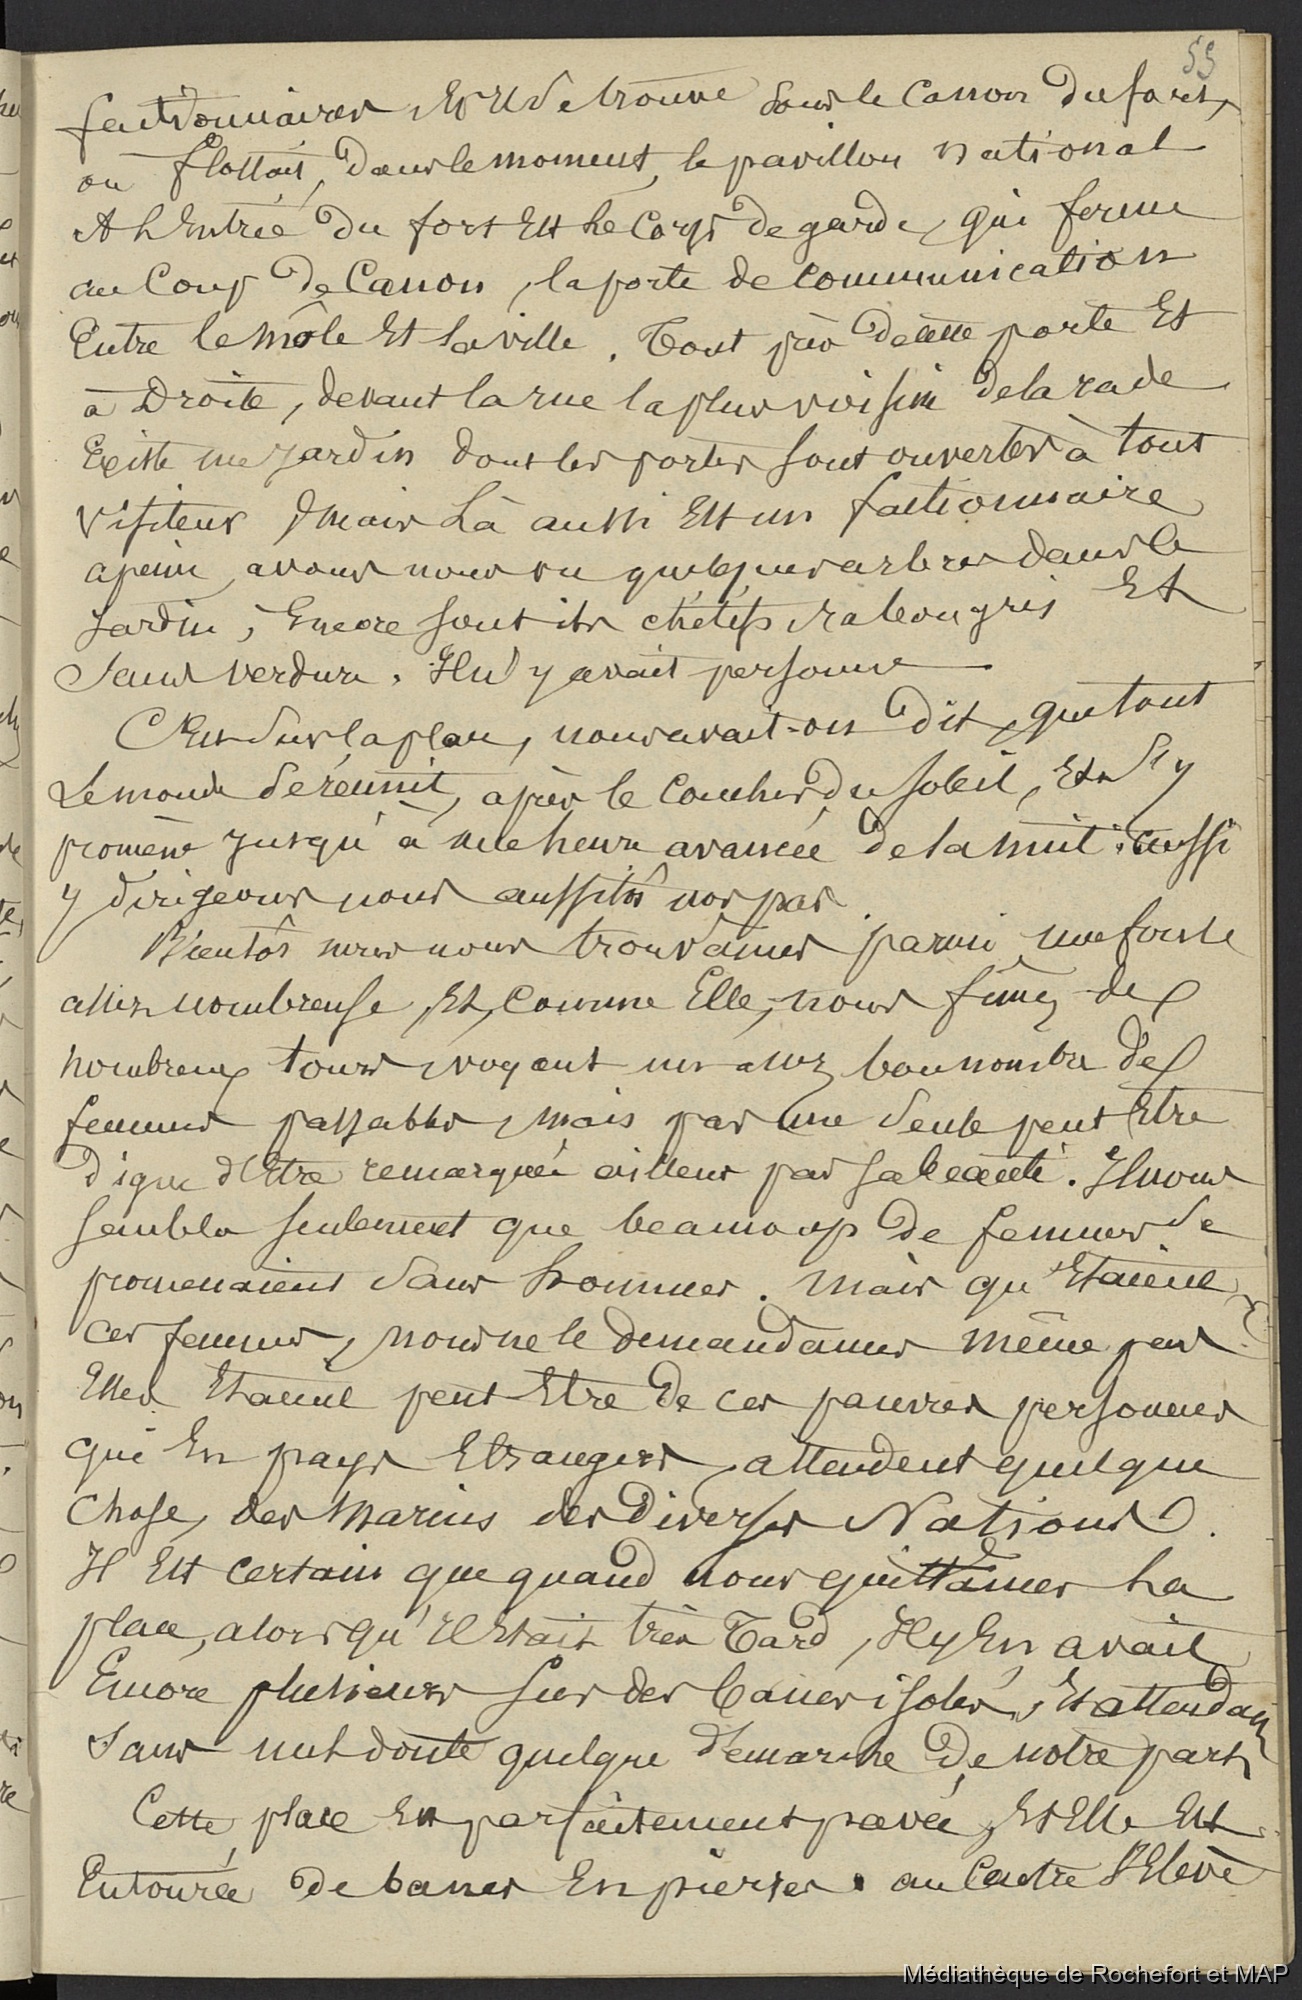 59
factionnaires, Et Il se trouve sous le Canon du fort,
où flottait, dans le moment, le pavillon national
A l'Entrée du fort Est le Corps de garde, qui ferme
au Coup de Canon, la porte de communication
Entre le môle Et la ville. Tout près de cette porte Et
à Droite, devant la rue la plus voisine de la rade
Existe un jardin dont les portes sont ouvertes à tout
visiteur, mais là aussi Est un factionnaire
a peine, avons nous vu quelques arbres dans le
jardin, Encore sont ils chétifs rabougris Et
sans verdure. Il n'y avait personne
C'Est sur la place, nous avait-on dit, que tout
Le monde se réunit, après le Coucher du soleil, Et s'y
promène jusqu'à une heure avancée de la nuit. aussi
y dirigeons nous aussitôt nos pas
Bientôt nous trouvâmes parmi une foule
assez nombreuse, Et, Comme Elle, nous fimes de
nombreux tours, voyant un assez bon nombre de
femmes passables, mais pas une seule peut Etre
digne d'Etre remarquée ailleurs par sa beauté. Il nous
sembla seulement que beaucoup de femmes se
promenaient sans hommes. Mais qu'Etaient
ces femmes, nous ne le demandames même pas
Elles Etaient peut-Etre de ces pauvres personnes
qui En pays Etrangers, attendent quelque
Chose, des Marins des diverses Nations.
Il Est certain que quand nous quittames La
place, alors qu'Il Etait très Tard, Il y En avait
Encore plusieurs sur des bancs isolés, Et attendant
sans nul doute quelque démarche de notre part
Cette place Est parfaitement pavée, Et Elle Est
Entourée de bancs En pierres. au Centre s'Elève
Médiathèque de Rochefort et MAP